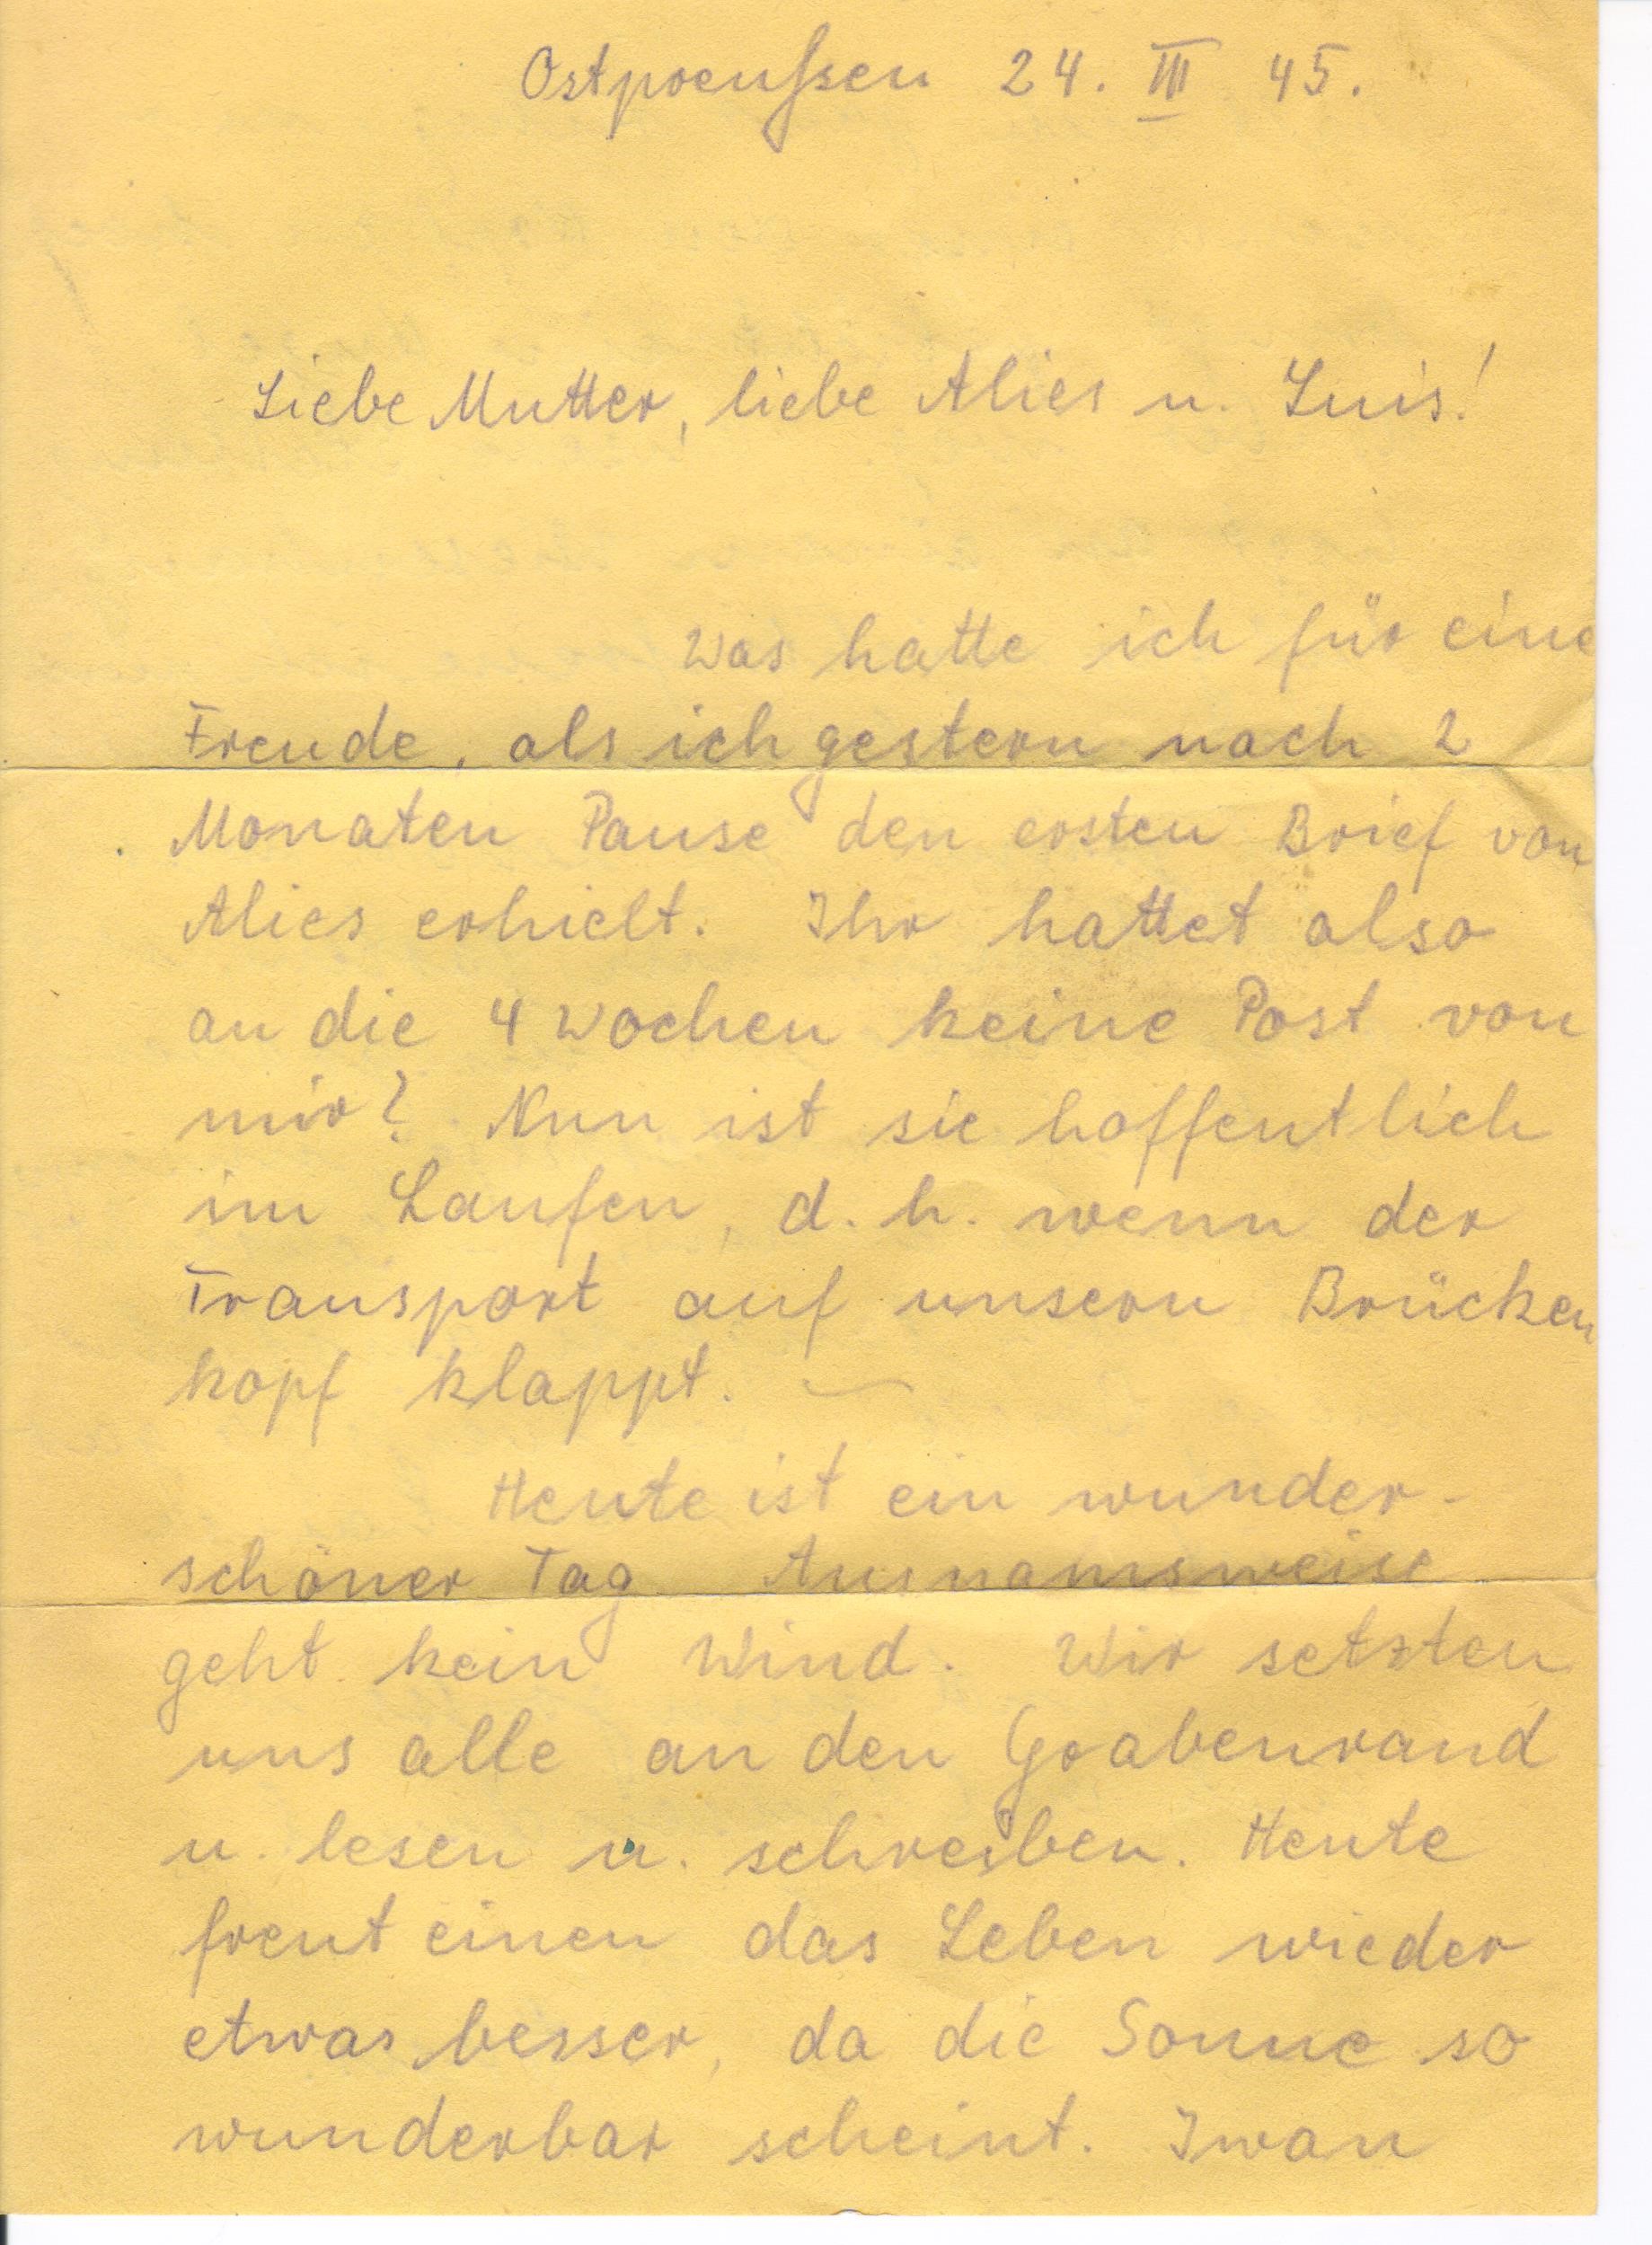 Ostpreußen 24. III 45.
Liebe Mutter, liebe Alies u. Luis!
Was hatte ich für eine
Freude, als ich gestern nach 2
Monaten Pause den ersten Brief von
Alies erhielt. Ihr hattet also
an die 4 Wochen keine Post von
mir? Nun ist sie hoffentlich
im Laufen, d. h. wenn der
Transport auf unsern Brücken
kopf klappt. –
Heute ist ein wunder-
schöner Tag. Ausnamsweise
geht kein Wind. Wir setzten
uns alle an den Grabenrand
u. lesen u. schreiben. Heute
freut einen das Leben wieder
etwas besser, da die Sonne so
wunderbar scheint. Iwan